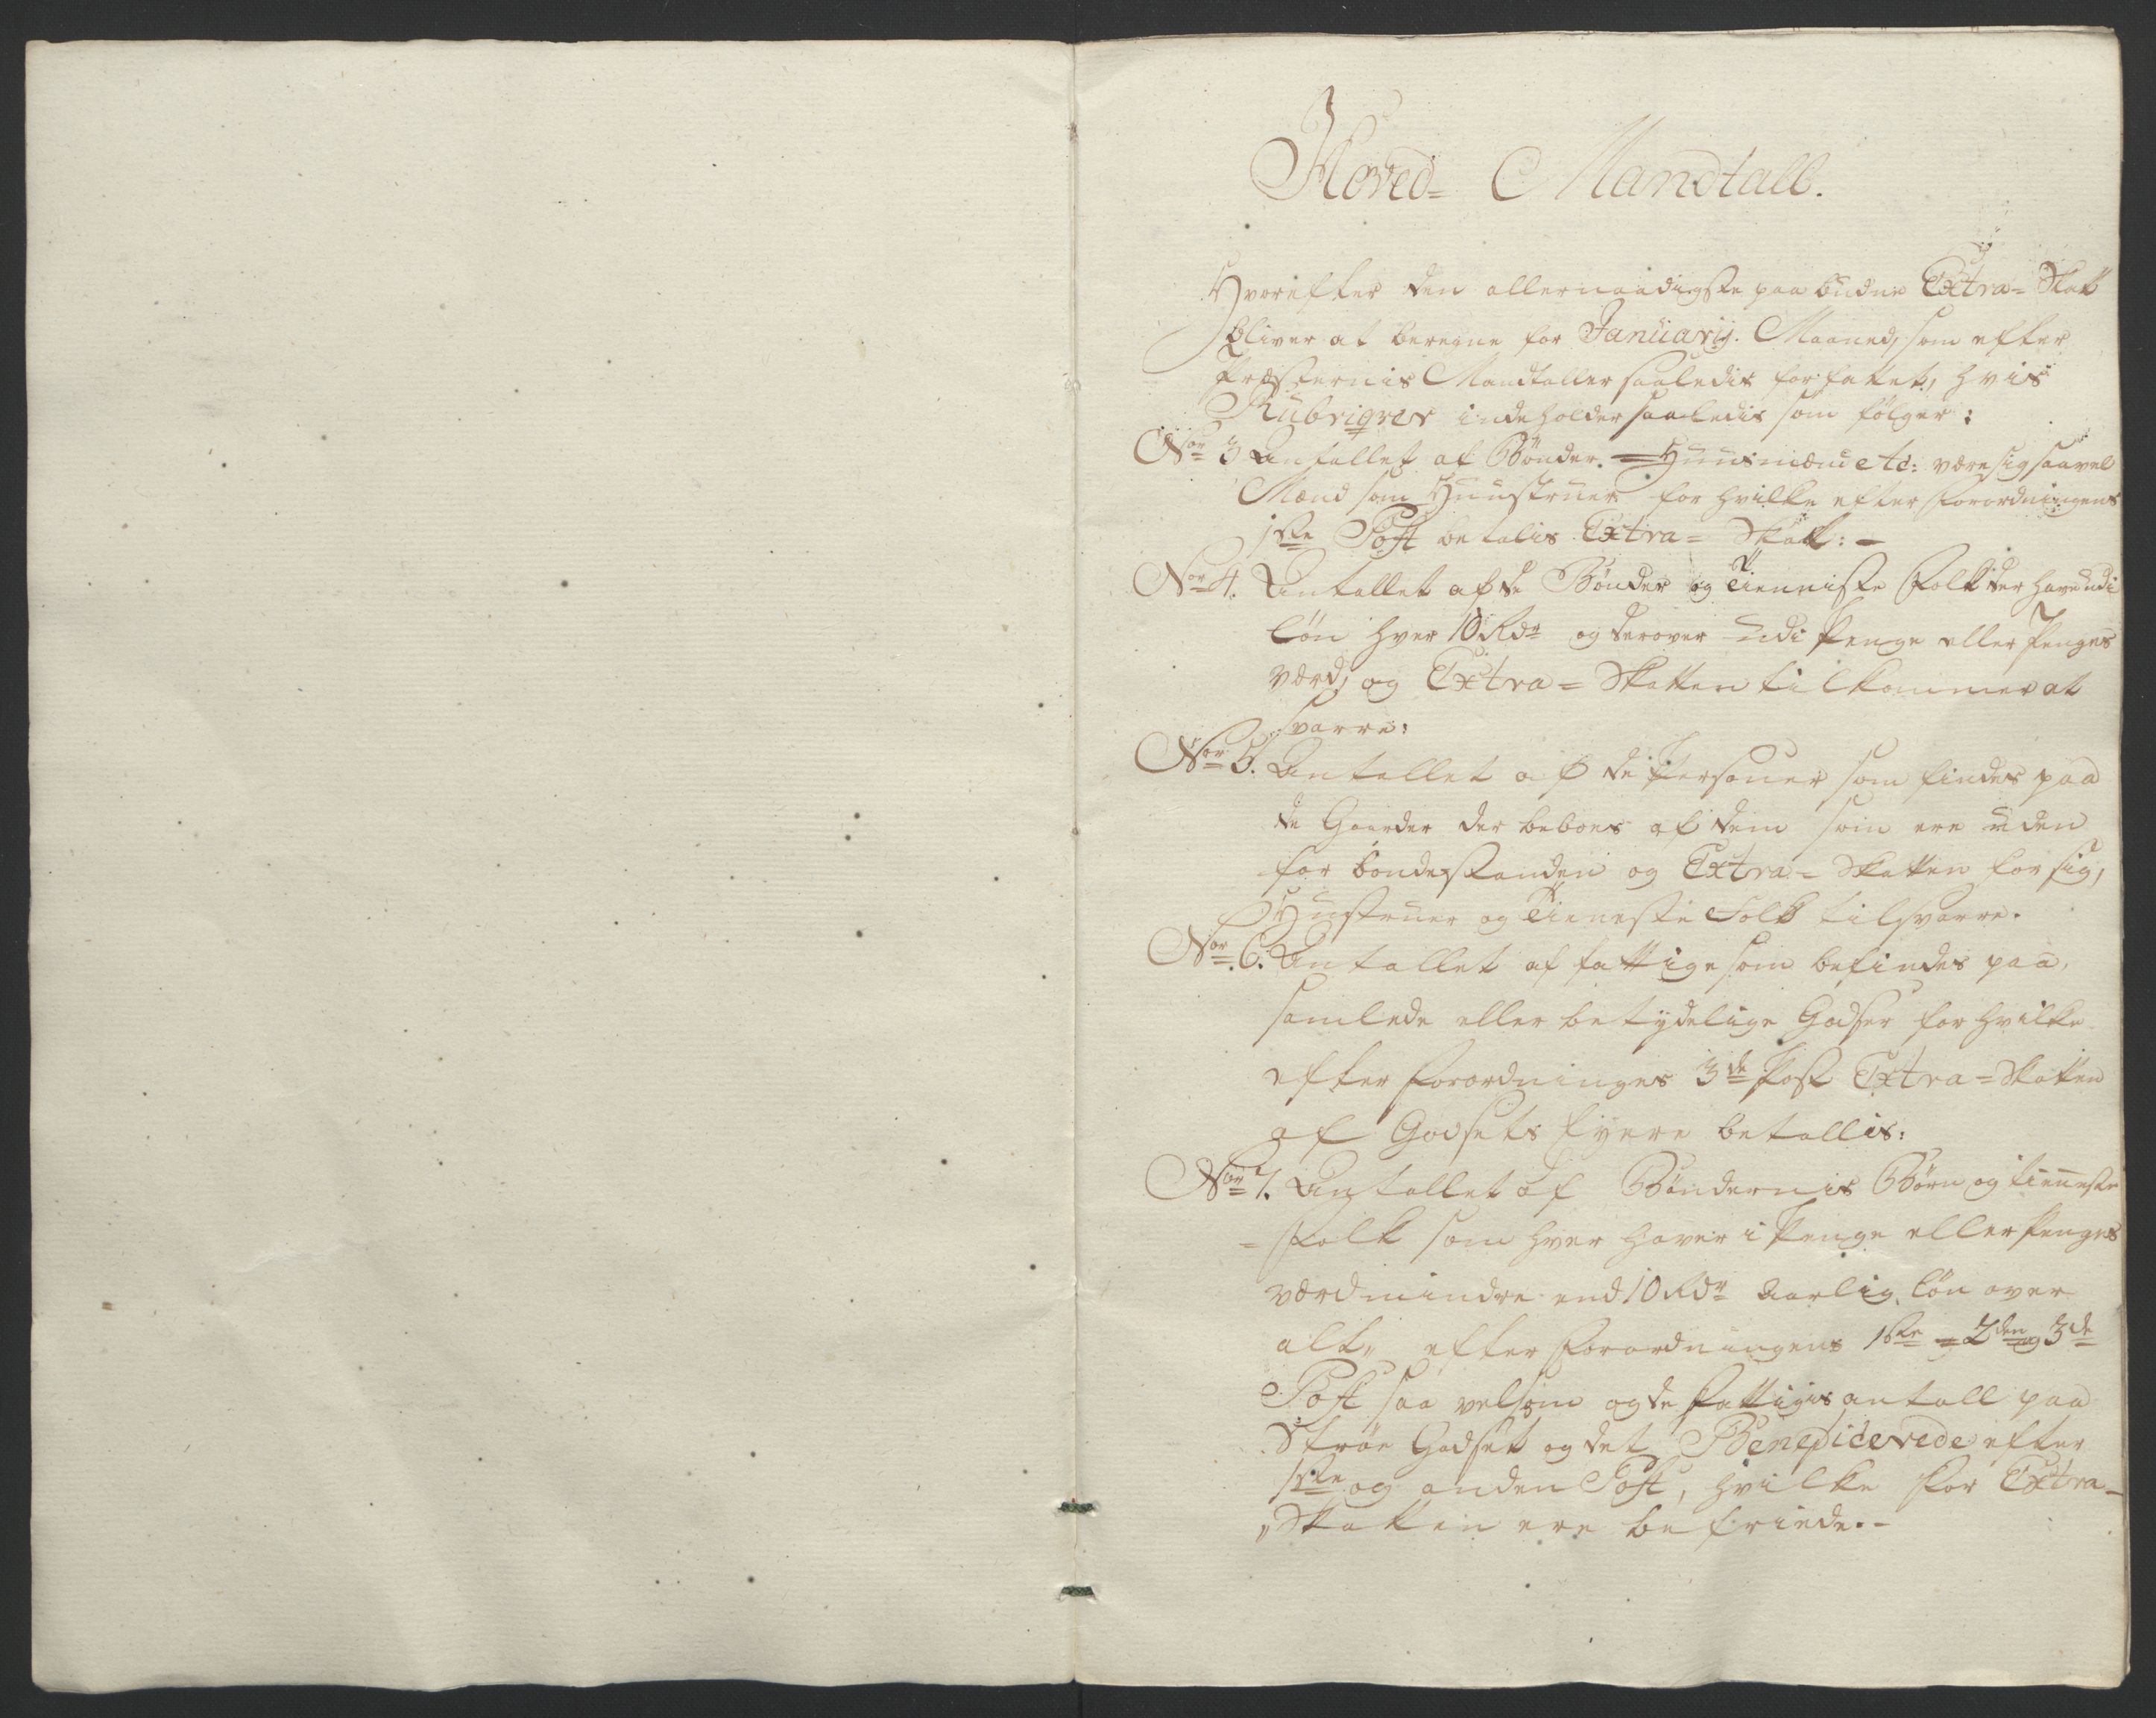 Hoved= Mandtall.
Hvorefter den allernaadigste paabudne Extra= Skatt
bliver at beregne for Januarij. Maaned, som efter
Præsternis Mandtaller saaledis forfattet, hvis
Rubriqver indeholder saaledis som følger:
Nor 3 Antallet af Bønder. Huusmænd etc: være sig saavel
Mænd som Huustruer for hvilke efter Forordningens
1ste Post betalis Extra= Skatt: -
Nor 4. Antallet af de Bønder og Tienniste Folk der have udi
Løn hver 10 Rdr og derover udi Penge eller Penges
værd, og Extra= Skatten tilkommer at
svarre:
Nor 5. Antallet af de Personer som findes paa
de Gaarder der beboes af dem som ere uden
for bondestanden og Extra= Skatten for sig,
Hustruer og Tieneste Folk tilsvarre.
Nor 6. Antallet af fattige som befindes paa,
samlede eller betydelige Godser for hvilke
efter Forordninges 3de Post Extra= Skatten
af Godsets Eyere betallis:
Nor 7. Antallet af Bøndernis Børn og tienneste
= Folk som hver haver i Penge eller Penges
værd mindre end 10 Rdr Aarlig Løn over
alt, efter Forordningens 1ste og 2den og 3de
Post saa velsom og de Fattiges antall paa
Strøe Godset og det Beneficerede efter
1ste og anden Post, hvilke for Extra=
Skatten ere befriede. -